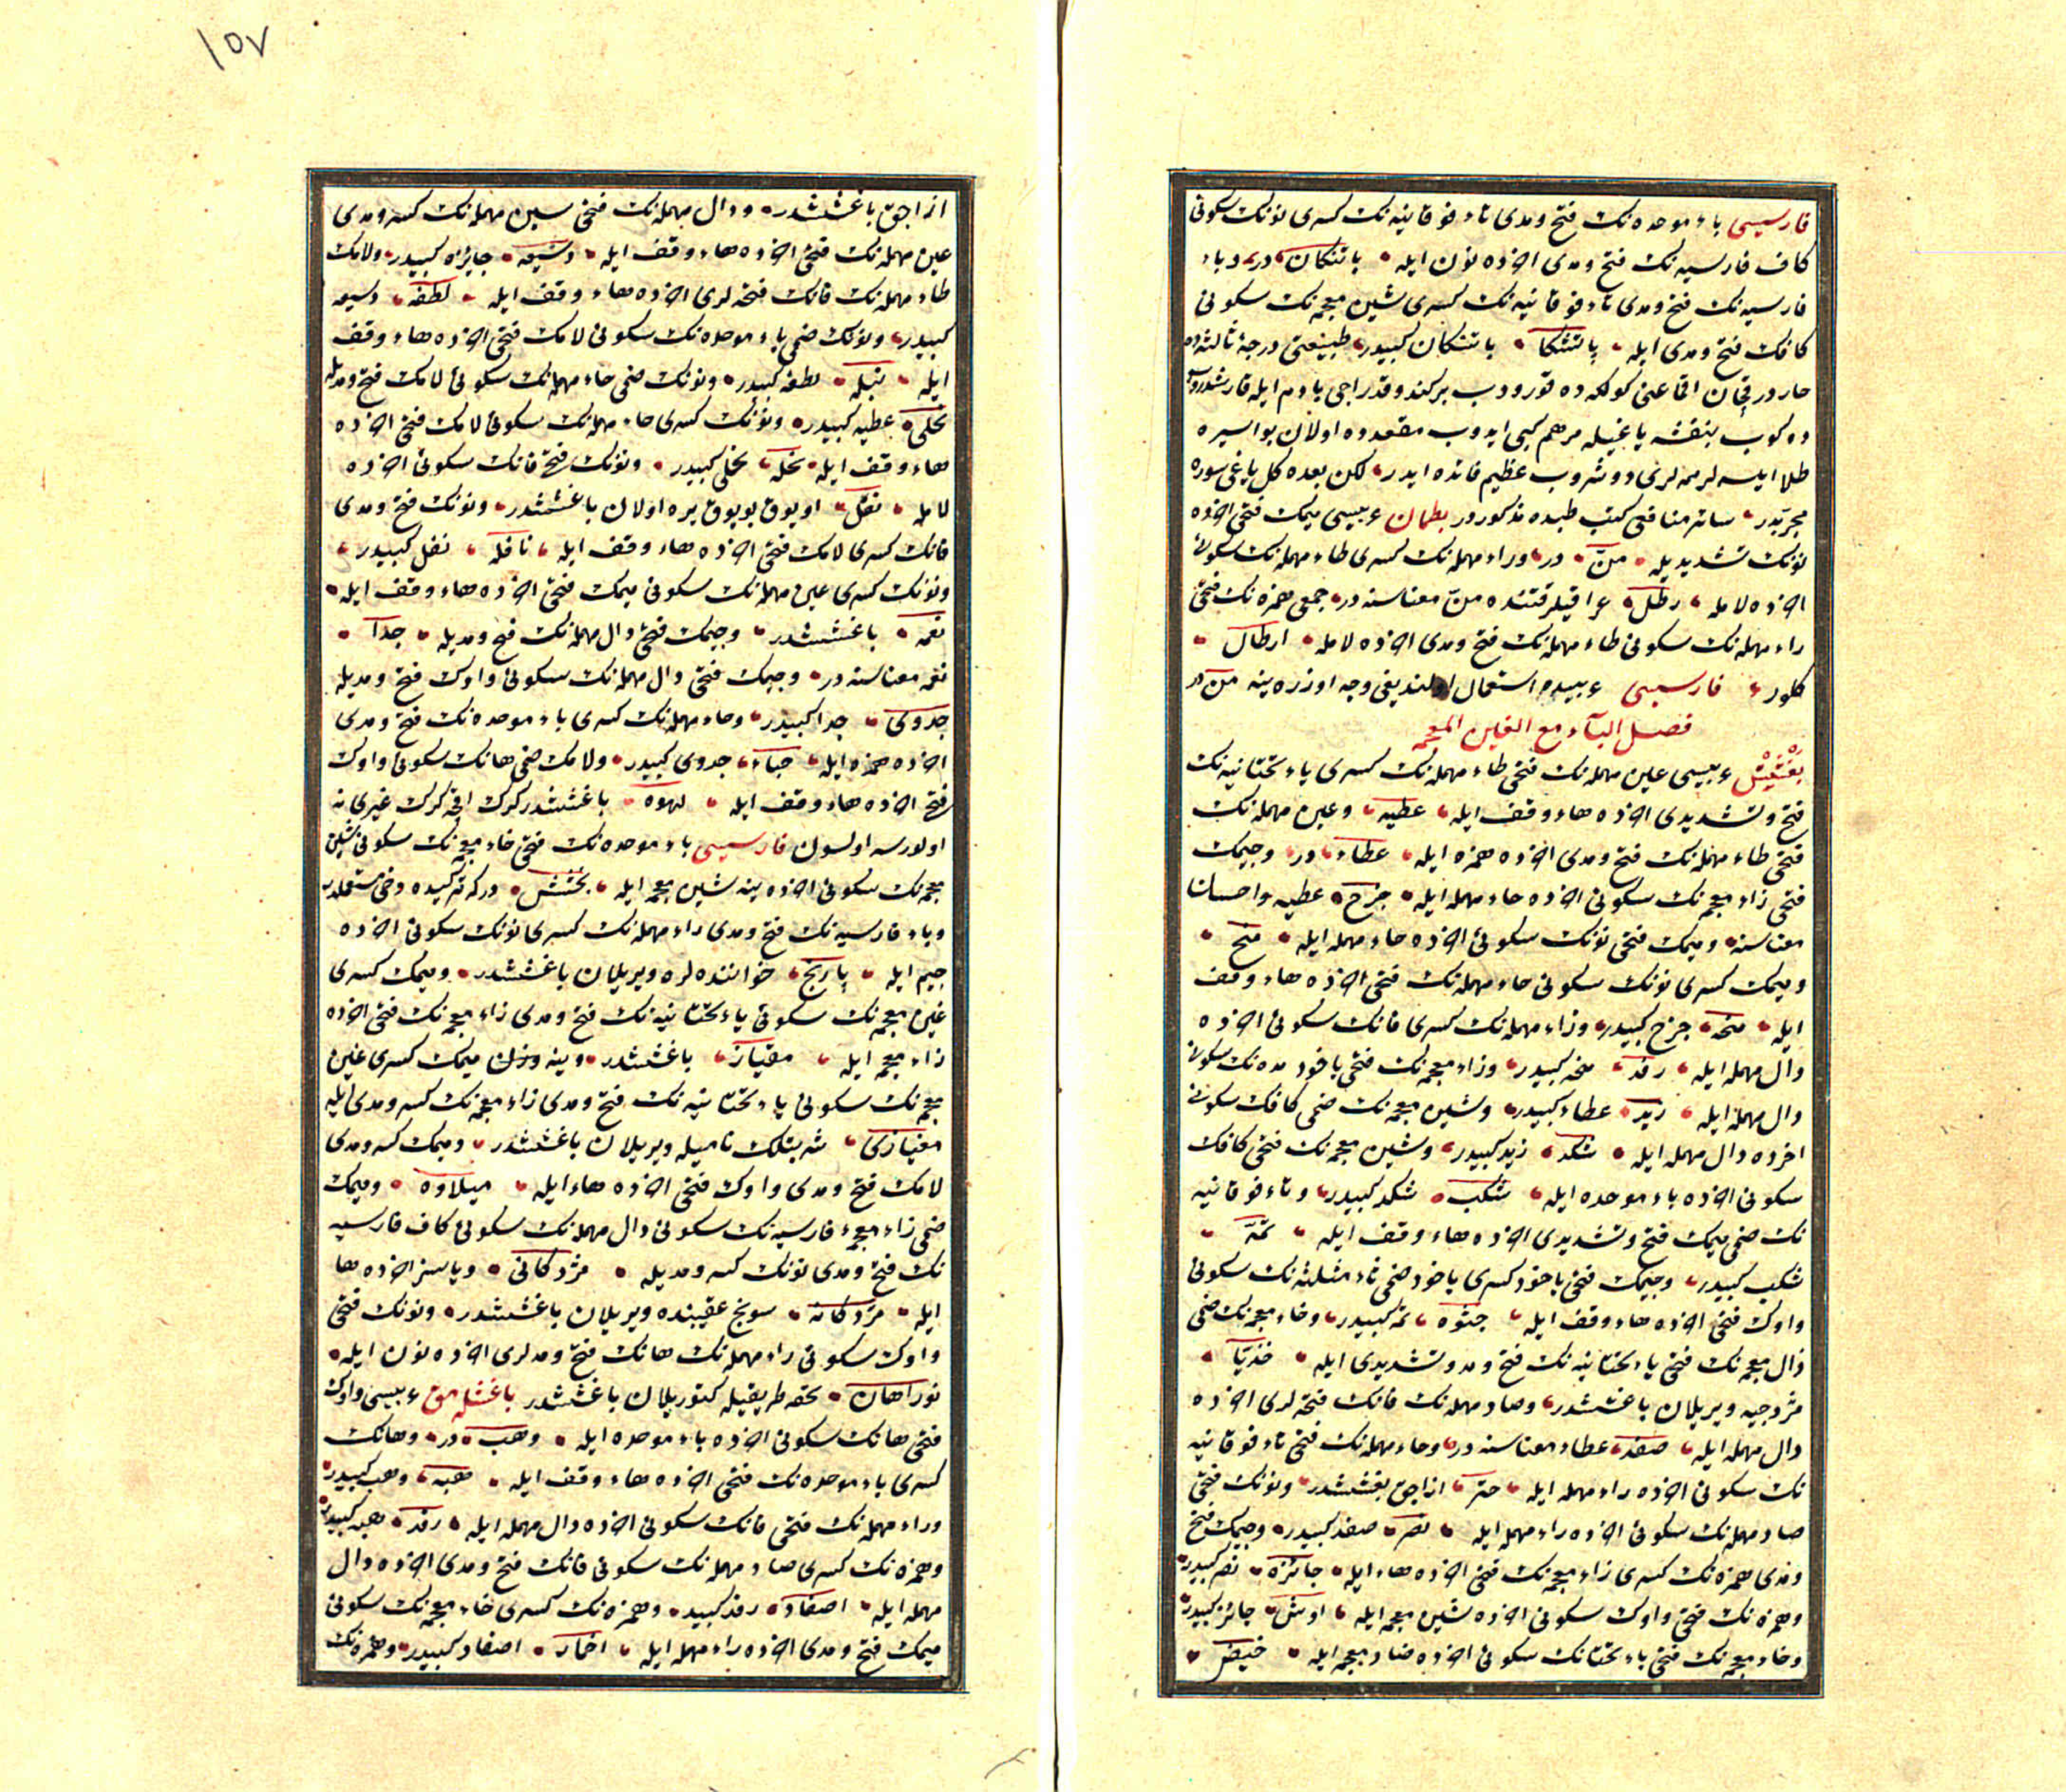 فارسیسی باء موحده نك فتح ومدی تاء فوقانیه نك كسری نونك سكونی
كاف فارسیه نك فتح ومدی اخرده نون ایله باتنكان در وباء
فارسیه نك فتح ومدی تاء فوقانیه نك كسری شین معجمه نك سكونی
كافك فتح ومدی ایله پاتشكا باتنكان كبیدر طبیعتی درجۀ ثالثه ده
حار در قچان اقماعنی كولكه ده قورودب بركند و قدر اجی بادم ایله قارشدروب
دوكوب بنفشه یاغیله مرهم كبی ایدوب مقعدده اولان بواسیره
طلا ایلسه لر مه لری دوشروب عظیم فائده ایدر لكن بعده كل یاغی سوره
مجربدر سائر منافعی كتب طبده مذكوردر بطمان عربیسی میمك فتحی اخرده
نونك تشدیدیله منّ در وراء مهمله نك كسری طاء مهمله نك سكونی
اخرده لامله رطل عراقیلر قتنده منّ معناسنه در جمعی همزه نك فتحی
راء مهمله نك سكونی طاء مهمله نك فتح ومدی اخرده لامله ارطال
كلور فارسیسی عربیده استعمال اولندیغی وجه اوزره ینه منّ در
فصل الباء مع الغین المعجمه
بغشیش عربیسی عین مهمله نك فتحی طاء مهمله نك كسری یاء تحتانیه نك
فتح وتشدیدی اخرده هاء وقف ایله عطیه وعین مهمله نك
فتحی طاء مهمله نك فتح ومدی اخرده همزه ایله عطاء در وجیمك
فتحی زاء معجمه نك سكونی اخرده حاء مهمله ایله جزح عطیه واحسان
معناسنه ومیمك فتحی نونك سكونی اخرده حاء مهمله ایله منح
ومیمك كسری نونك سكونی حاء مهمله نك فتحی اخرده هاء وقف
ایله منحه جزح كبیدر وراء مهمله نك كسری فانك سكونی اخرده
دال مهمله ایله رفد منحه كبیدر وزاء معجمه نك فتحی یاخود مده نك سكونی
دال مهمله ایله زید عطاء كبیدر وشین معجمه نك ضمی كافك سكونی
اخرده دال مهمله ایله شكد زید كبیدر وشین معجمه نك فتحی كافك
سكونی اخرده باء موحده ایله شكب شكد كبیدر وتاء فوقانیه
نك ضمی میمك فتح وتشدیدی اخرده هاء وقف ایله تمّه
شكب كبیدر وجیمك فتحی یاخود كسری یاخود ضمی ثاء مثلثه نك سكونی
واوك فتحی اخرده هاء وقف ایله جثوه تمه كبیدر وخاء معجمه نك ضمی
ذال معجمه نك فتحی یاء تحتانیه نك فتح ومد وتشدیدی ایله خذیّا
مژدجیه ویریلان باغششدر وصاد مهمله نك فانك فتحه لری اخرده
دال مهمله ایله صفد عطاء معناسنه در وحاء مهمله نك فتحی تاء فوقانیه
نك سكونی اخرده راء مهمله ایله حتر ازاجق بغششدر ونونك فتحی
صاد مهمله نك سكونی اخرده راء مهمله ایله نصر صفد كبیدر وجیمك فتح
ومدی همزه نك كسری زاء معجمه نك فتحی اخرده هاء ایله جائزه نصر كبیدر
وهمزه نك فتحی واوك سكونی اخرده شین معجمه ایله اوش جائزه كبیدر
وخاء معجمه نك فتحی یاء تحتانك سكونی اخرده ضاد معجمه ایله خیض
۱۵۷
ازاجق باغششدر ودال مهمله نك فتحی سین مهمله نك كسر ومدی
عین مهمله نك فتحی اخرده هاء وقف ایله دسیعه جایزه كبیدر ولامك
طاء مهمله نك فانك فتحه لری اخرده هاء وقف ایله لطفه دسیعه
كبیدر ونونك ضمی باء موحده نك سكونی لامك فتحی اخرده هاء وقف
ایله نبله لطفه كبیدر ونونك ضمی حاء مهمله نك سكونی لامك فتح ومدیله
نحلی عطیه كبیدر ونونك كسری حاء مهمله نك سكونی لامك فتحی اخرده
هاء وقف ایله نحله نحلی كبیدر ونونك فتح فانك سكونی اخرده
لامله نفل اویوق بویوق یره اولان باغششدر ونونك فتح ومدی
فانك كسری لامك فتحی اخرده هاء وقف ایله نافله نفل كبیدر
ونونك كسری عین مهمله نك سكونی میمك فتحی اخرده هاء وقف ایله
نعمه باغششدر وجیمك فتحی دال مهمله نك فتح ومدیله جدا
نعمه معناسنه در وجیمك فتحی دال مهمله نك سكونی واوك فتح ومدیله
جدوی جدا كبیدر وحاء مهمله نك كسری باء موحده نك فتح ومدی
اخرده همزه ایله حباء جدوی كبیدر ولامك ضمی هانك سكونی واوك
فتح اخرده هاء وقف ایله لهوه باغششدر كرك اقچه كرك غیری نه
اولورسه اولسون فارسیسی باء موحده نك فتحی خاء معجمه نك سكونی شین
معجمه نك سكونی اخرده ینه شین معجمه ایله بخشش در كه تركیده دخی مستعملدر
وباء فارسیه نك فتح ومدی راء مهمله نك كسری نونك سكونی اخرده
جیم ایله پارنج خواننده لره ویریلان باغششدر ومیمك كسری
غین معجمه نك سكونی یاء تحتانیه نك فتح ومدی زاء معجمه نك فتحی اخرده
زاء معجمه ایله مغیاز باغششدر وینه وزن میمك كسری غین
معجمه نك سكونی یاء تحتانیه نك فتح ومدی زاء معجمه نك كسر ومدی ایله
مغیازی شربتلك نامیله ویریلان باغششدر ومیمك كسر ومدی
لامك فتح ومدی واوك فتحی اخرده هاء ایله میلاوه ومیمك
ضمی زاء معجمه فارسیه نك سكونی دال مهمله نك سكونی كاف فارسیه
نك فتح ومدی نونك كسر ومدیله مژدكانی ویاسز اخرده ها
ایله مژدكانه سونج عقیبنده ویریلان باغششدر ونونك فتحی
واوك سكونی راء مهمله نك هانك فتح ومدلری اخرده نون ایله
نوراهان تحفه طریقیله كتوریلان باغششدر باغشلمق عربیسی واوك
فتحی هانك سكونی اخرده باء موحده ایله وهب در وهانك
كسری باء موحده نك فتحی اخرده هاء وقف ایله هبه وهب كبیدر
وراء مهمله نك فتحی فانك سكونی اخرده دال مهمله ایله رفد هبه كبیدر
وهمزه نك كسری صاد مهمله نك سكونی فانك فتح ومدی اخرده دال
مهمله ایله اصفاد رفد كبیدر وهمزه نك كسری خاء معجمه نك سكونی
میمك فتح ومدی اخرده راء مهمله ایله اخمار اصفاد كبیدر وهمزه نك